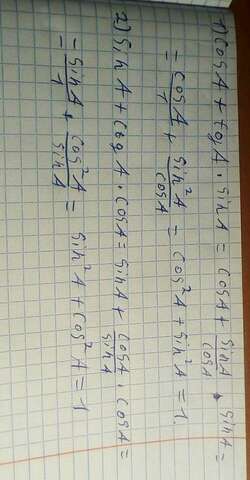 1) cos A + tg A · sin A = cos A + sin A / cos A · sin A =
= cos A / 1 + sin²A / cos A = cos²A + sin²A = 1.
2) sin A + ctg A · cos A = sin A + cos A / sin A · cos A =
= sin A / 1 + cos²A / sin A = sin²A + cos²A = 1